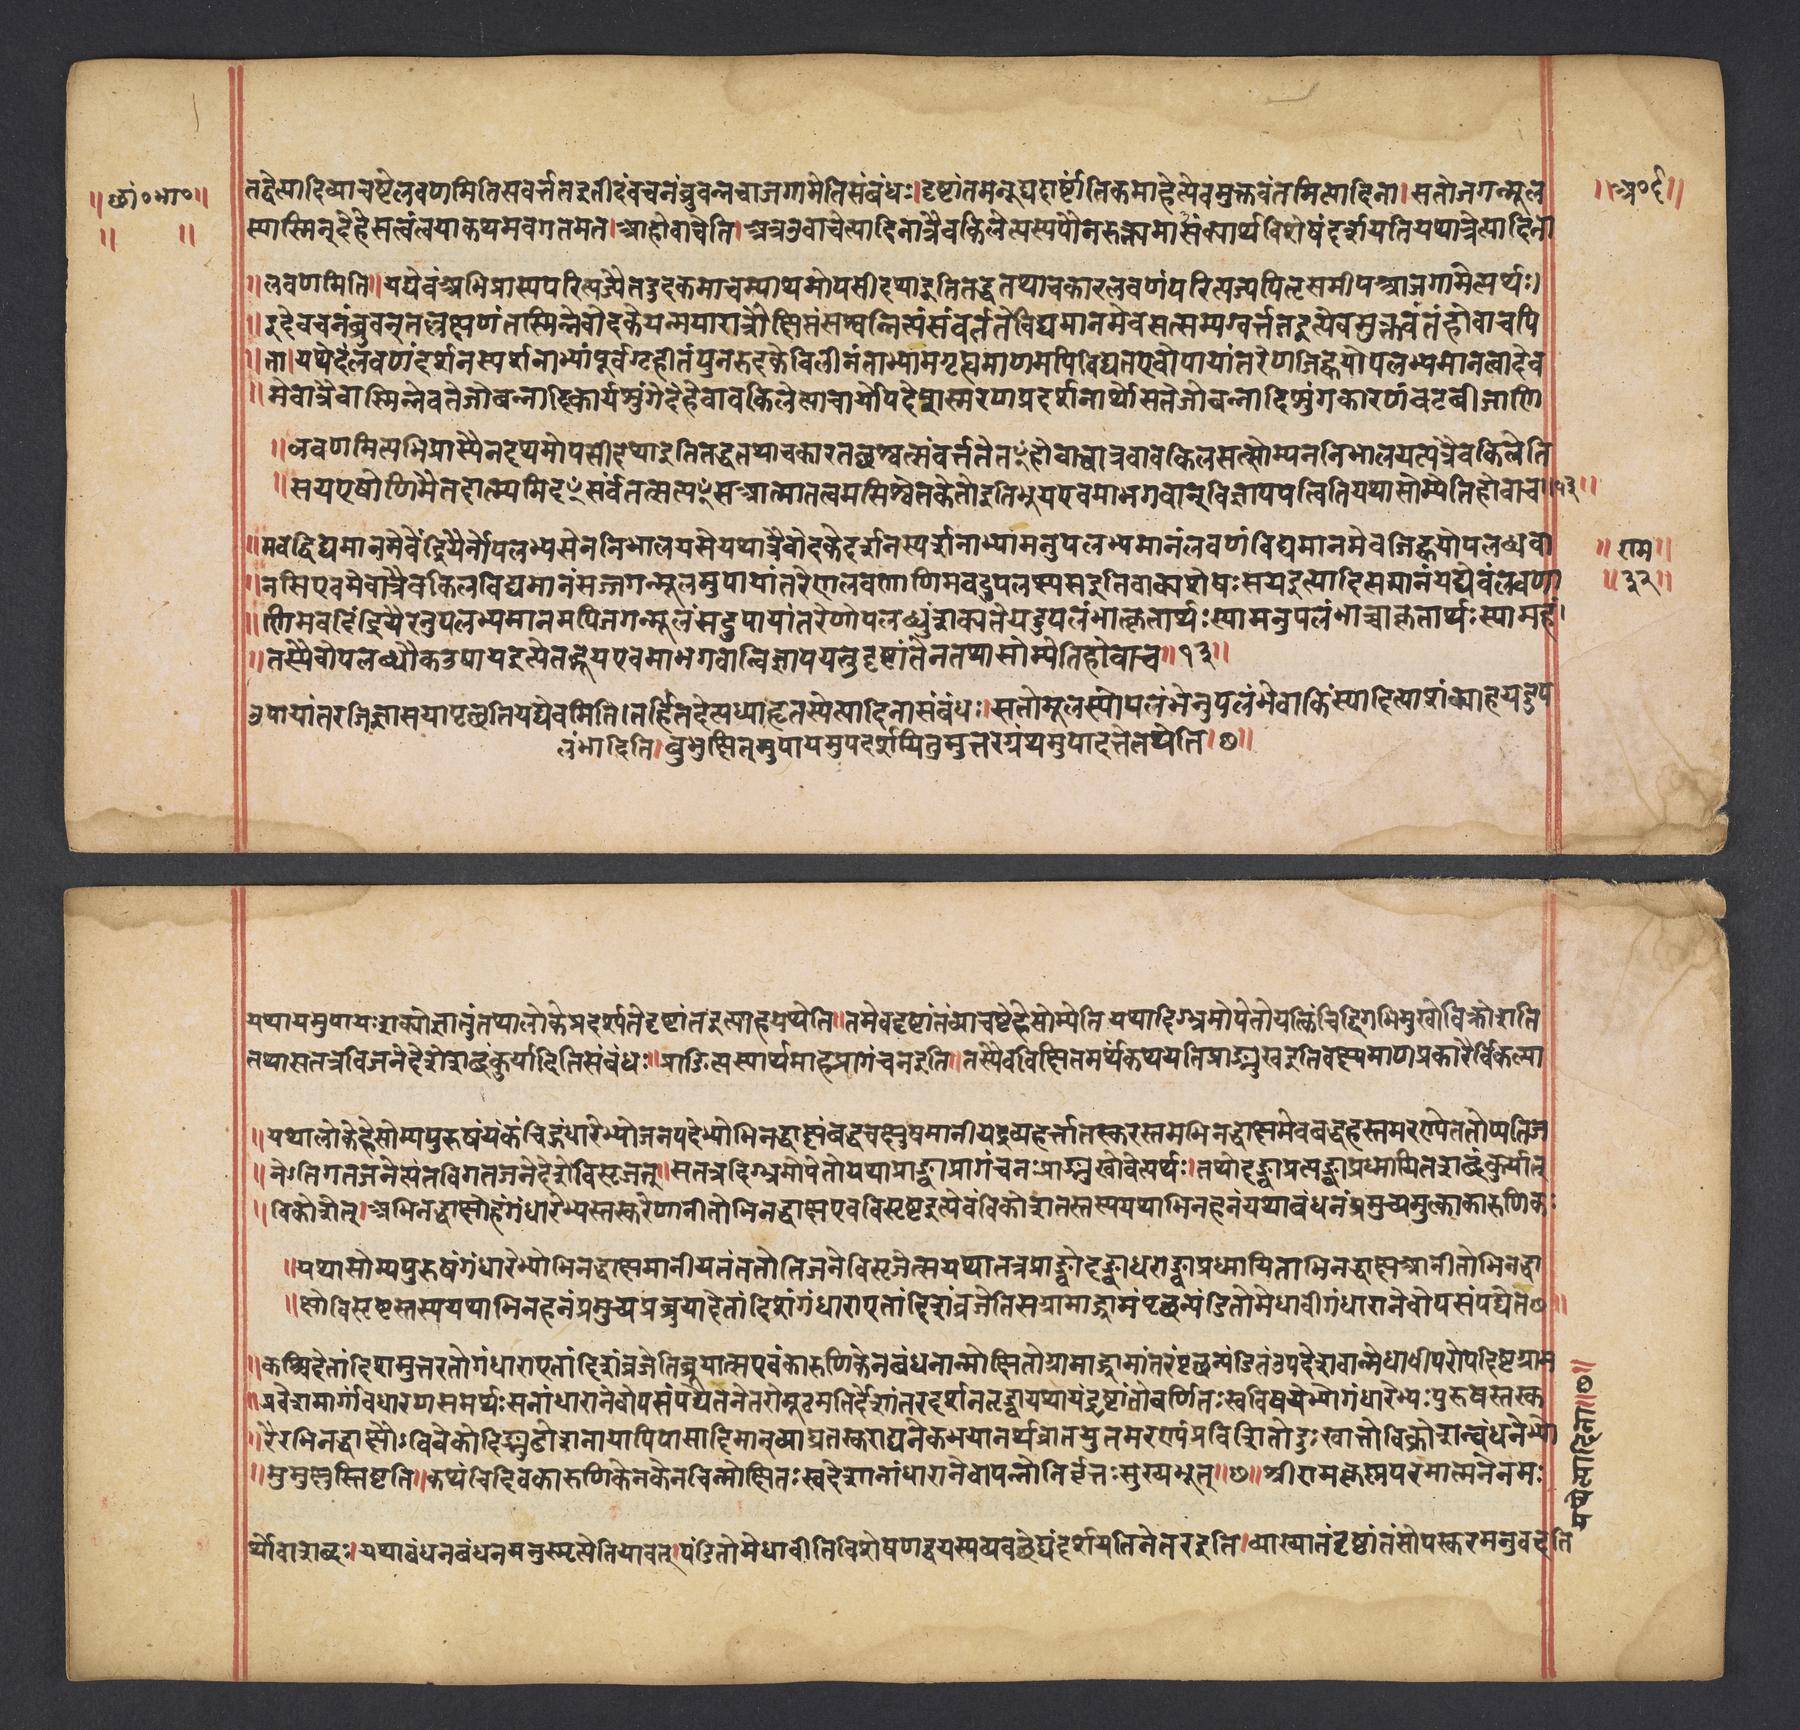 ॥छां०भा०॥
॥ ॥
॥अ०६॥
तद्वेत्यादिव्याचष्टेलवणमितिसवर्त्ततइतीदंवचनंब्रुवन्नेवाजगामेतिसंबंधः।दृष्टांतमनूद्यदार्ष्टांतिकमाहेत्येवमुक्तवंतमित्यादिना।सतोजगन्मूल
स्यास्मिन्देहेसत्वंलयाकथमवगतमत।आहोवाचेति।अत्रउवाचेत्यादिनात्रैवकिलेत्यस्यपौनरुक्त्यमाशंक्यार्थविशेषंदर्शयतियथात्रेत्यादिना
॥लवणमिति॥यद्येवंअभिप्रास्यपरित्यज्यैतदुदकमाचम्याथमोपसीदथाइतितद्धतथाचकारलवणंपरित्यज्यपितृसमीपआजगामेत्यर्थः।
॥इदंवचनंब्रुवन्तल्लवणंतस्मिन्नेवोदकेयन्मयारात्रौक्षिप्तंसश्वन्नित्यंसंवर्त्ततेविद्यमानमेवसत्सम्यग्वर्त्ततइत्येवमुक्तवंतंहोवाचपि
॥ता।यथेदंलवणंदर्शनस्पर्शनाभ्यांपूर्वगृहीतंपुनरुदकेविलीनंताभ्यामगृह्यमाणमपिविद्यतएवोपायांतरेणजिह्वयोपलभ्यमानत्वादेव
॥मेवात्रैवास्मिन्नेवतेजोबन्नादिकार्यशुंगेदेहेवावकिलेत्याचार्योपदेशस्मरणप्रदर्शनार्थोसतेजोबन्नादिशुंगकारणंवटबीजाणि
॥लवणमित्यभिप्रास्यैनदथमोपसीदथाइतितद्धतथाचकारतच्छश्वत्संवर्त्ततेतꣳहोवाचात्रवावकिलसत्सोम्यननिभालयत्यत्रैवकिलेति
॥सयएषोणिमैतदात्म्यमिदꣳसर्वंतत्सत्यꣳसआत्मातत्वमसिश्वेतकेतोइतिभूयएवमाभगवान्विज्ञापयत्वितितथासोम्येतिहोवाच॥१३॥
॥मवद्विद्यमानमेवेंद्रियैर्नोपलभ्यसेननिभालयसेयथात्रैवोदकेदर्शनस्पर्शनाभ्यामनुपलभ्यमानंलवणंविद्यमानमेवजिह्वयोपलब्धवा
॥राम॥
॥नसिएवमेवात्रैवकिलविद्यमानंसज्जगन्मूलमुपायांतरेणलवणाणिमवदुपलप्स्यसइतिवाक्यशेषःसयइत्यादिसमानंयद्येवंलवणा
॥३२॥
॥णिमवदिंद्रियैरनुपलभ्यमानमपिजगन्मूलंसदुपायांतरेणोपलब्धुंशक्यतेयदुपलंभात्कृतार्थःस्यामनुपलंभाच्चाकृतार्थःस्यामहं।
॥तस्यैवोपलब्धौकउपायइत्येतद्भूयएवमाभगवान्विज्ञापयतुदृष्टांतेनतथासोम्येतिहोवाच॥१३॥
उपायांतरजिज्ञासयापृच्छतियद्येवमिति।तर्हितदेत्यध्याहृतस्येत्यादिनासंबंधः।सतोमूलस्योपलंभेनुपलंभेवाकिंस्यादित्याशंक्याहयदुप
लंभादिति।बुभुत्सितमुपायमुपदर्शयितुमुत्तरग्रंथमुपादत्तेतथेति।७॥
यथायमुपायःशक्योज्ञातुंतथालोकेप्रदर्श्यतेदृष्टांतइत्याहयथेति॥तमेवदृष्टांतंव्याचष्टेहेसोम्येति।यथादिग्भ्रमोपेतोयत्किंचिद्दिगभिमुखोविक्रोशति
तथासतत्रविजनेदेशेशब्दंकुर्यादितिसंबंधः॥प्राङित्यस्यार्थमाहप्रागंचनइति॥तस्यैवविवक्षितमर्थंकथयतिप्राङ्मुखइतिवक्ष्यमाणप्रकारैर्विकल्पा
॥यथालोकेहेसोम्यपुरुषंयंकंचिद्गंधारेभ्योजनपदेभ्योभिनद्धाक्षंबद्धचक्षुषमानीयद्रव्यहर्त्तातस्करस्तमभिनद्धाक्षमेवबद्धहस्तमरण्येततोप्यतिज
॥नेतिगतजनेत्यंतविगतजनेदेशेविसृजेत्॥सतत्रदिग्भ्रमोपेतोयथाप्राङ्वाप्रागंचनःप्राङ्मुखोवेत्यर्थः।तथोदङ्वाप्रत्यङ्वाप्रध्मायितशब्दंकुर्यात्
॥विक्रोशेत्।अभिनद्धाक्षोहंगंधारेभ्यस्तस्करेणानीतोभिनद्धाक्षएवविसृष्टइत्येवंविक्रोशतस्तस्ययथाभिनहनंयथाबंधनंप्रमुच्यमुक्त्वाकारुणिकः
॥यथासोम्यपुरुषंगंधारेभ्योभिनद्धाक्षमानीयतंततोतिजनेविसृजेत्सयथातत्रप्राङ्वोदङ्वाधराङ्वाप्रध्मायिताभिनद्धाक्षआनीतोभिनद्धा
॥क्षोविसृष्टस्तस्ययथाभिनहनंप्रमुच्यप्रब्रूयादेतांदिशंगंधाराएतांदिशंव्रजेतिसग्रामाद्ग्रामंपृच्छन्पंडितोमेधावीगंधारानेवोपसंपद्येते७॥
॥कश्चिदेतांदिशमुत्तरतोगंधाराएतांदिशंव्रजेतिब्रूयात्सएवंकारुणिकेनबंधनान्मोक्षितोग्रामाद्ग्रामांतरंपृच्छन्पंडितउपदेशवान्मेधावीपरोपदिष्टग्राम
॥प्रवेशमार्गावधारणसमर्थःसनांधारानेवोपसंपद्येतनेतरोमूढमतिर्देशांतरदर्शनतृड्वायथायंदृष्टांतोवर्णितःस्वविषयेभ्योगंधारेभ्यःपुरुषस्तस्क
॥रैरभिनद्धाक्षोऽविवेकोदिङ्मूढोशनायापिपासादिमान्व्याघ्रतस्कराद्यनेकभयानर्थव्रातयुतमरण्यंप्रविशितोदुःखार्त्तोविक्रोशन्बंधनेभ्यो
॥मुमुक्षुस्तिष्टति॥कथंचिदेवकारुणिकेनकेनचिन्मोक्षितःस्वदेशान्गंधारानेवापन्नोनिर्वृत्तःसुख्यभूत्॥७॥श्रीरामकृष्णपरमात्मनेनमः
र्थोवाशब्दः।यथाबंधनबंधनमनुसृत्येतियावत्।पंडितोमेधावीतिविशेषणद्वयस्यव्यवच्छेद्यंदर्शयतिनेतरइति।व्याख्यातंदृष्टांतंसोपस्करमनुवदति
यथेत्यादिना॥७॥